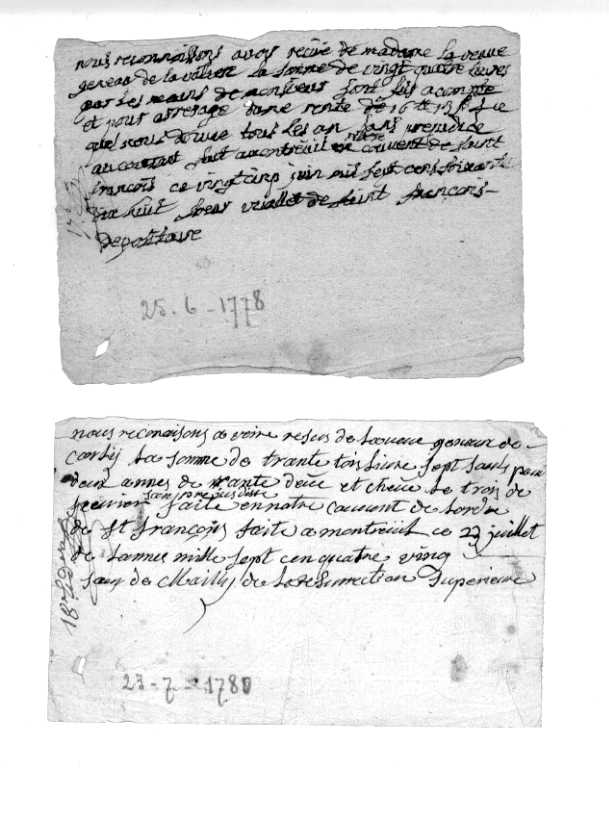 nous reconnoissons avoir recüe de madame la veuve
geneau de la the somme de vingt quatre livres
par les mains de monsieur a compte
et pour arrerage dune rente de 16 tt 13 s
quel nous doivve tous les an sans prejudice
au courant fait a montreüil notre couvent de saint
françois ce vingt cinq juin mil sept cens soixante
dix huit soeur de saint françois
depositaire
25-6-1778
nous reconoisons a voire resus de la veuve genaux de
la somme de trante tois livre sept saus pour
deux annes de rante deue et cheüe le trois de
fevrier sans prejudise faite en notre couvent de lordre
de st françois faite a montreuil ce 23 juillet
de lannee mille sept cen quatre ving
soeur de Mailly de la resurrection superieure
23-7-1780